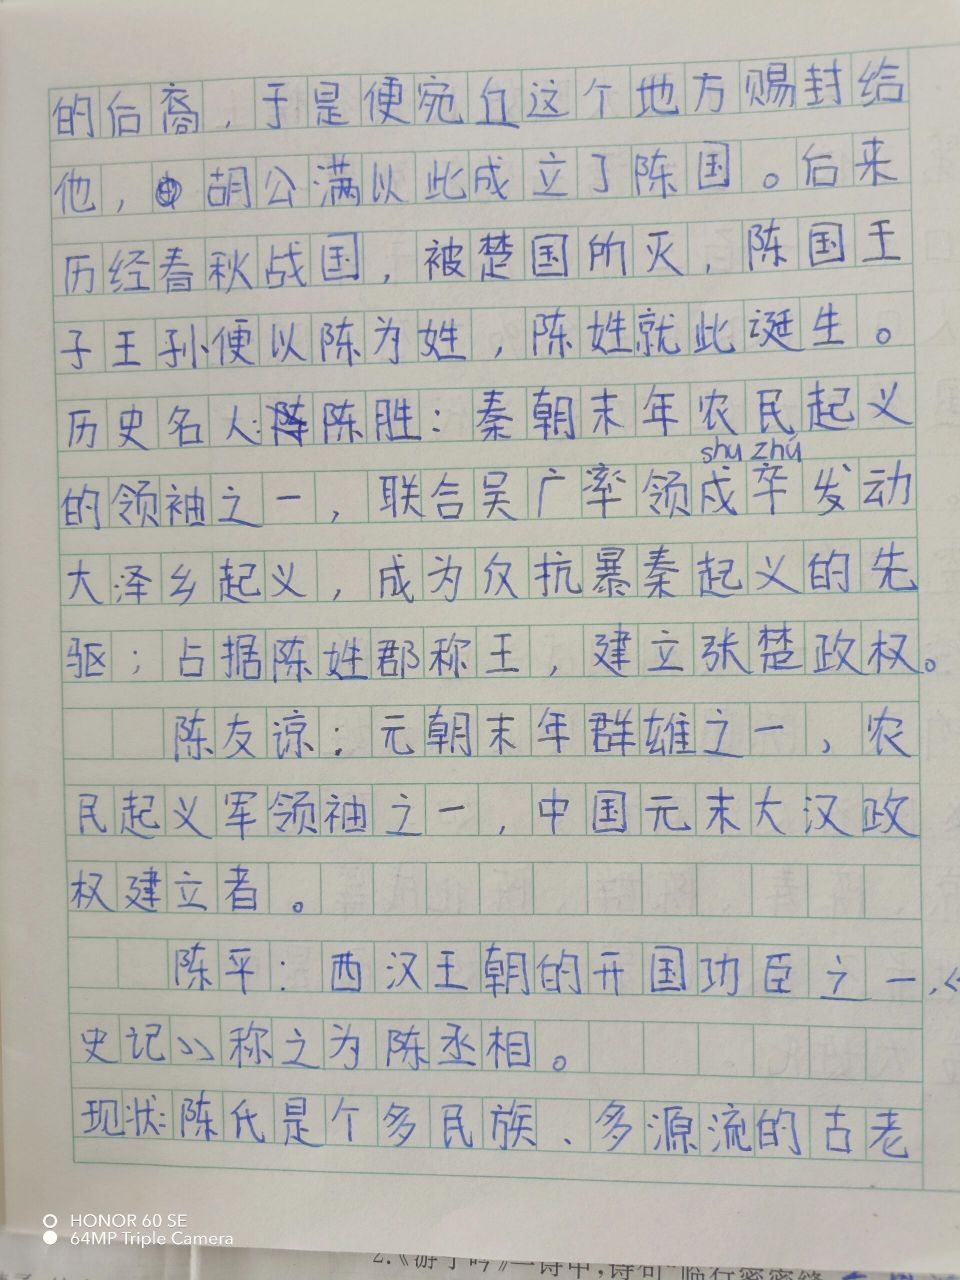 的后裔，于是便宛丘这个地方赐封给
他，胡公满以此成立了陈国。后来
历经春秋战国，被楚国所灭，陈国王
子王孙便以陈为姓，陈姓就此诞生。
历史名人：陈胜：秦朝末年农民起义
shu zhú
的领袖之一，联合吴广率领戍卒发动
大泽乡起义，成为仅抗暴秦起义的先
驱；占据陈姓郡称王，建立张楚政权。
陈友谅：元朝末年群雄之一，农
民起义军领袖之一，中国元末大汉政
权建立者。
陈平：西汉王朝的开国功臣之一，《
史记》称之为陈丞相。
现状：陈氏是个多民族、多源流的古老
HONOR 60 SE
64MP Triple Camera
2.《游子吟》一诗中，诗句"临行密密缝